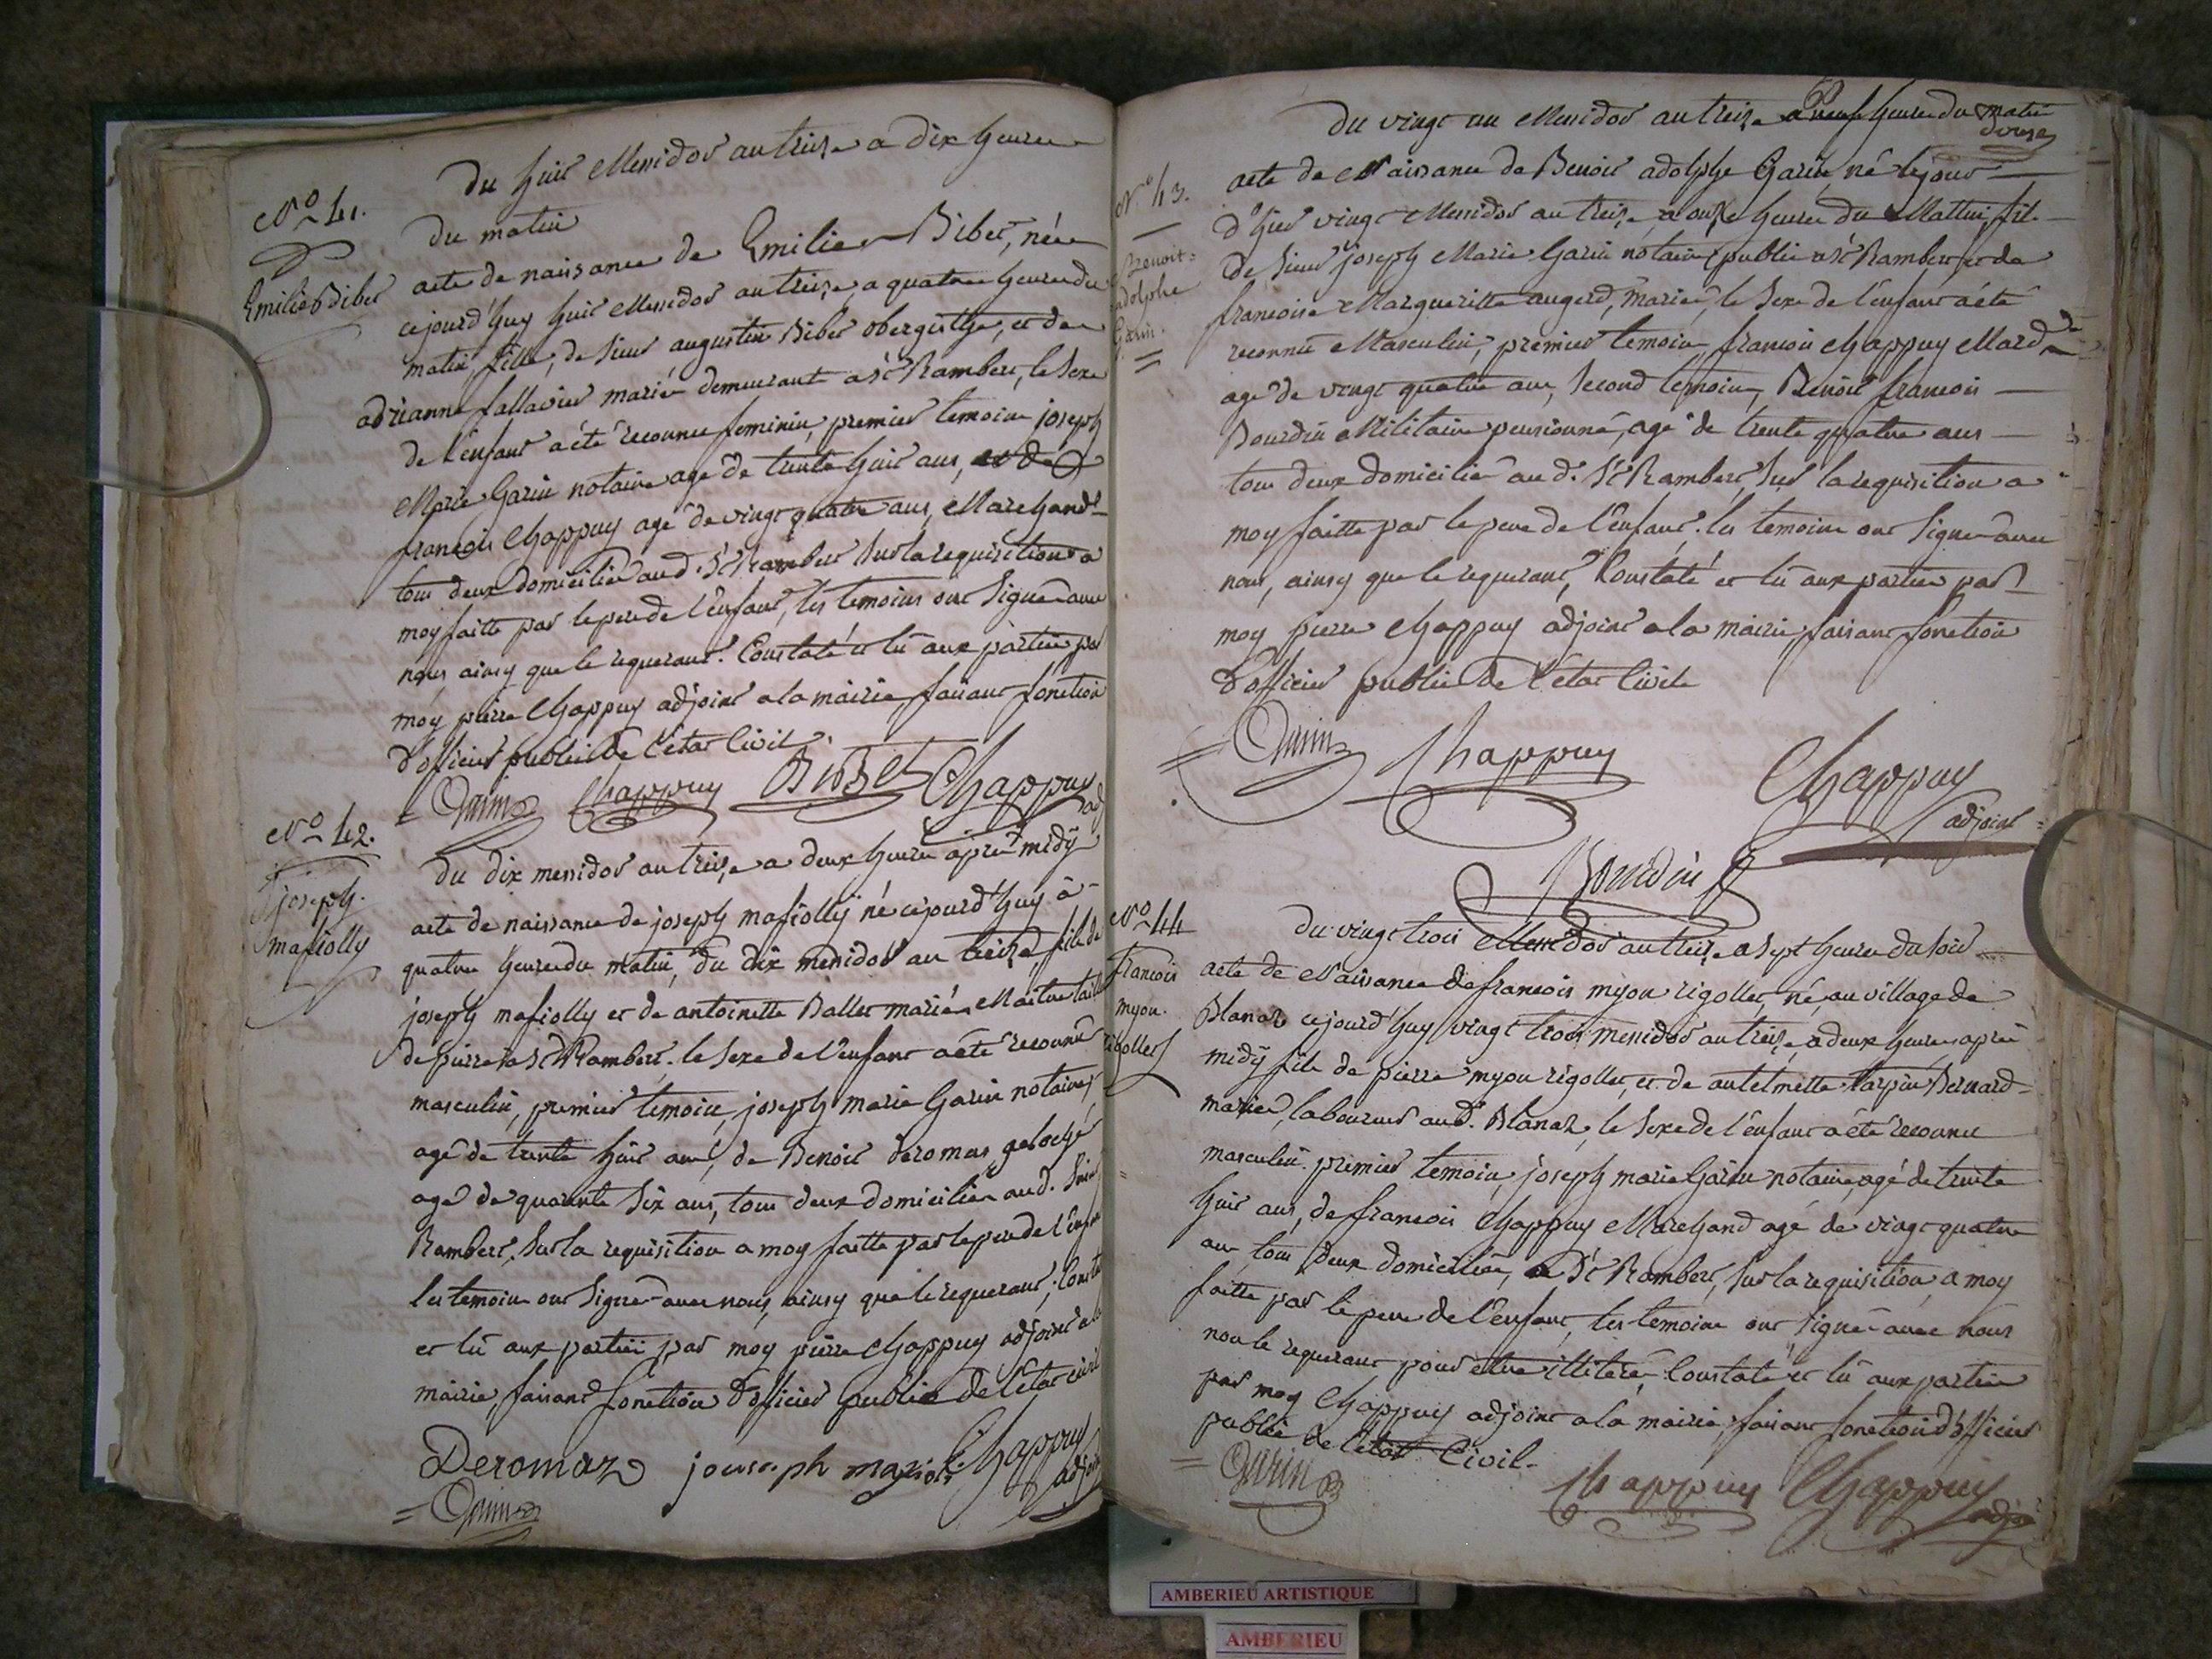 du huit Messidor an treize a dix heures
N.º 41.
du matin
Emilie Bibet
acte de naissance de Emilie Bibet, née
cejourd'huy huit Messidor an treize, a quatre heures du
matin, fille, de sieur augustin Bibet obergiste, et de
adrianne fallavier mariés demeurant a St Rambert, le sexe
de l'enfant a été reconnu feminin, premier temoin joseph
Marie Garin notaire agé de trente huit ans, et de
francois Chappuy agé de vingt quatre ans, Marchand
tous deux domiciliés aud. St Rambert sur la requisition a
moy faitte par le pere de l'enfant, les temoins ont signé avec
nous ainsy que le requerant. Constaté et lû aux parties par
moy pierre Chappuy adjoint a la mairie, faisant fonction
d'officier public de l'état Civil.
Garin Chappuy Bibet Chappuy adj
N.º 42.
joseph
mafiolly
du dix messidor an treize a deux heures après midÿ
acte de naissance de joseph mafiolly né cejourd'huy à
quatre heures du matin, du dix messidor an treize, fils de
joseph mafiolly et de antoinette Ballet mariés Maitre taill
de pierre a St Rambert. le sexe de l'enfant a été reconnû
masculin, premier temoin, joseph marie Garin notaire,
agé de trente huit ans, de Benoit deromas
agé de quarante six ans, tous deux domiciliés aud. Saint
Rambert, sur la requisition a moy faitte par le pere de l'enfan
les temoins ont signé avec nous, ainsy que le requerant; Consta
et lû aux parties par moy pierre Chappuy adjoint a la
mairie, faisant fonction d'officier public de l'état civil
Deromaz jouseph mafioly Chappuy
adjoint
Garin
60
du vingt un Messidor an treize a neuf heures du matin
N.º 43.
Benoit
adolphe
Garin.
acte de Naissance de Benoit adolphe Garin, né le jour
d'hier vingt Messidor an treize, a onze heures du Mattin, fils
de sieur joseph Marie Garin notaire public a St Rambert et de
francoise Margueritte augerd, mariés, le sexe de l'enfant a été
reconnû Masculin, premier temoin, francois Chappuy Mard
agé de vingt quatre ans, second temoin, Benoit francois
Bourdin Militaire pensionné, agé de trente quatre ans
tous deux domiciliés aud. St Rambert, sur la requisition a
moy faitte par le pere de l'enfant. les temoins ont signé avec
nous, ainsy que le requerant, Constaté et lû aux parties par
moy pierre Chappuy adjoint a la mairie, faisant fonction
d'officier public de l'état Civil
Garin Chappuy Chappuy
adjoint
Bourdin
N.º 44
francois
myon
rigollet
du vingt trois Messidor an treize a sept heures du soir
acte de Naissance de francois myon rigollet, né, au village de
Blanaz cejourd'huy vingt trois messidor an treize, a deux heures après
midÿ fils de pierre myon rigollet, et de antelmette tarpin Bernard
mariés, laboureur aud. Blanaz, le sexe de l'enfant a été reconnu
masculin. premier temoin, joseph marie Garin notaire, agé de trente
huit ans, de francois Chappuy Marchand agé de vingt quatre
ans tous deux domiciliés, a St Rambert, sur la requisition, a moy
faitte par le pere de l'enfant, les temoins ont signé avec nous
non le requerant pour etre illiteré, Constaté et lû aux parties
par moy Chappuy adjoint a la mairie, faisant fonction d'officier
public de l'état Civil.
Garin Chappuy Chappuy
adjoi
AMBERIEU ARTISTIQUE
AMBERIEU